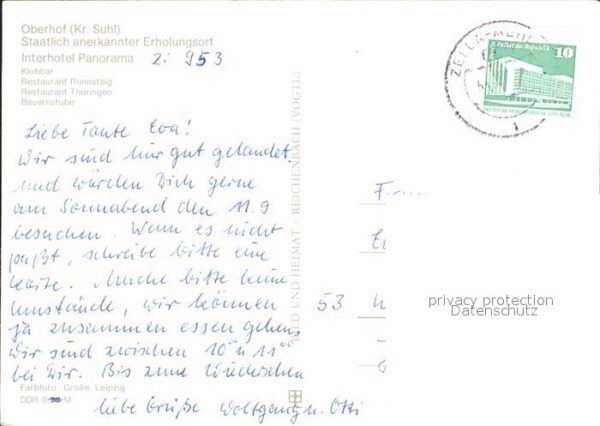 Oberhof (Kr. Suhl)
Staatlich anerkannter Erholungsort
Interhotel Panorama
Klubbar
Restaurant Rennsteig
Restaurant Thüringen
Bauernstube
Zi 953
Liebe Tante Eva!
Wir sind hier gut gelandet
und würden Dich gerne
am Sonnabend den 11.9.
besuchen. Wenn es nicht
paßt, schreibe bitte eine
Karte. Mache bitte keine
Umstände, wir können
ja zusammen essen gehen.
Wir sind zwischen 10⁰⁰ u 11⁰⁰
bei Dir. Bis zum Wiedersehen
liebe Grüße Wolfgang u. Otti
Farbfoto: Große, Leipzig
DDR M
BILD UND HEIMAT · REICHENBACH (VOGTL)
ZELLA-MEH
Palast der Republik
10
DEUTSCHE DEMOKRATISCHE REPUBLIK
F
53
privacy protection
Datenschutz